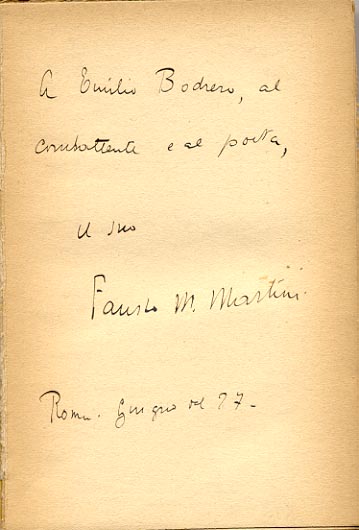 A Emilio Bodrero, al
combattente e al poeta,
il suo
Fausto M. Martini.
Roma. Giugno del 27-